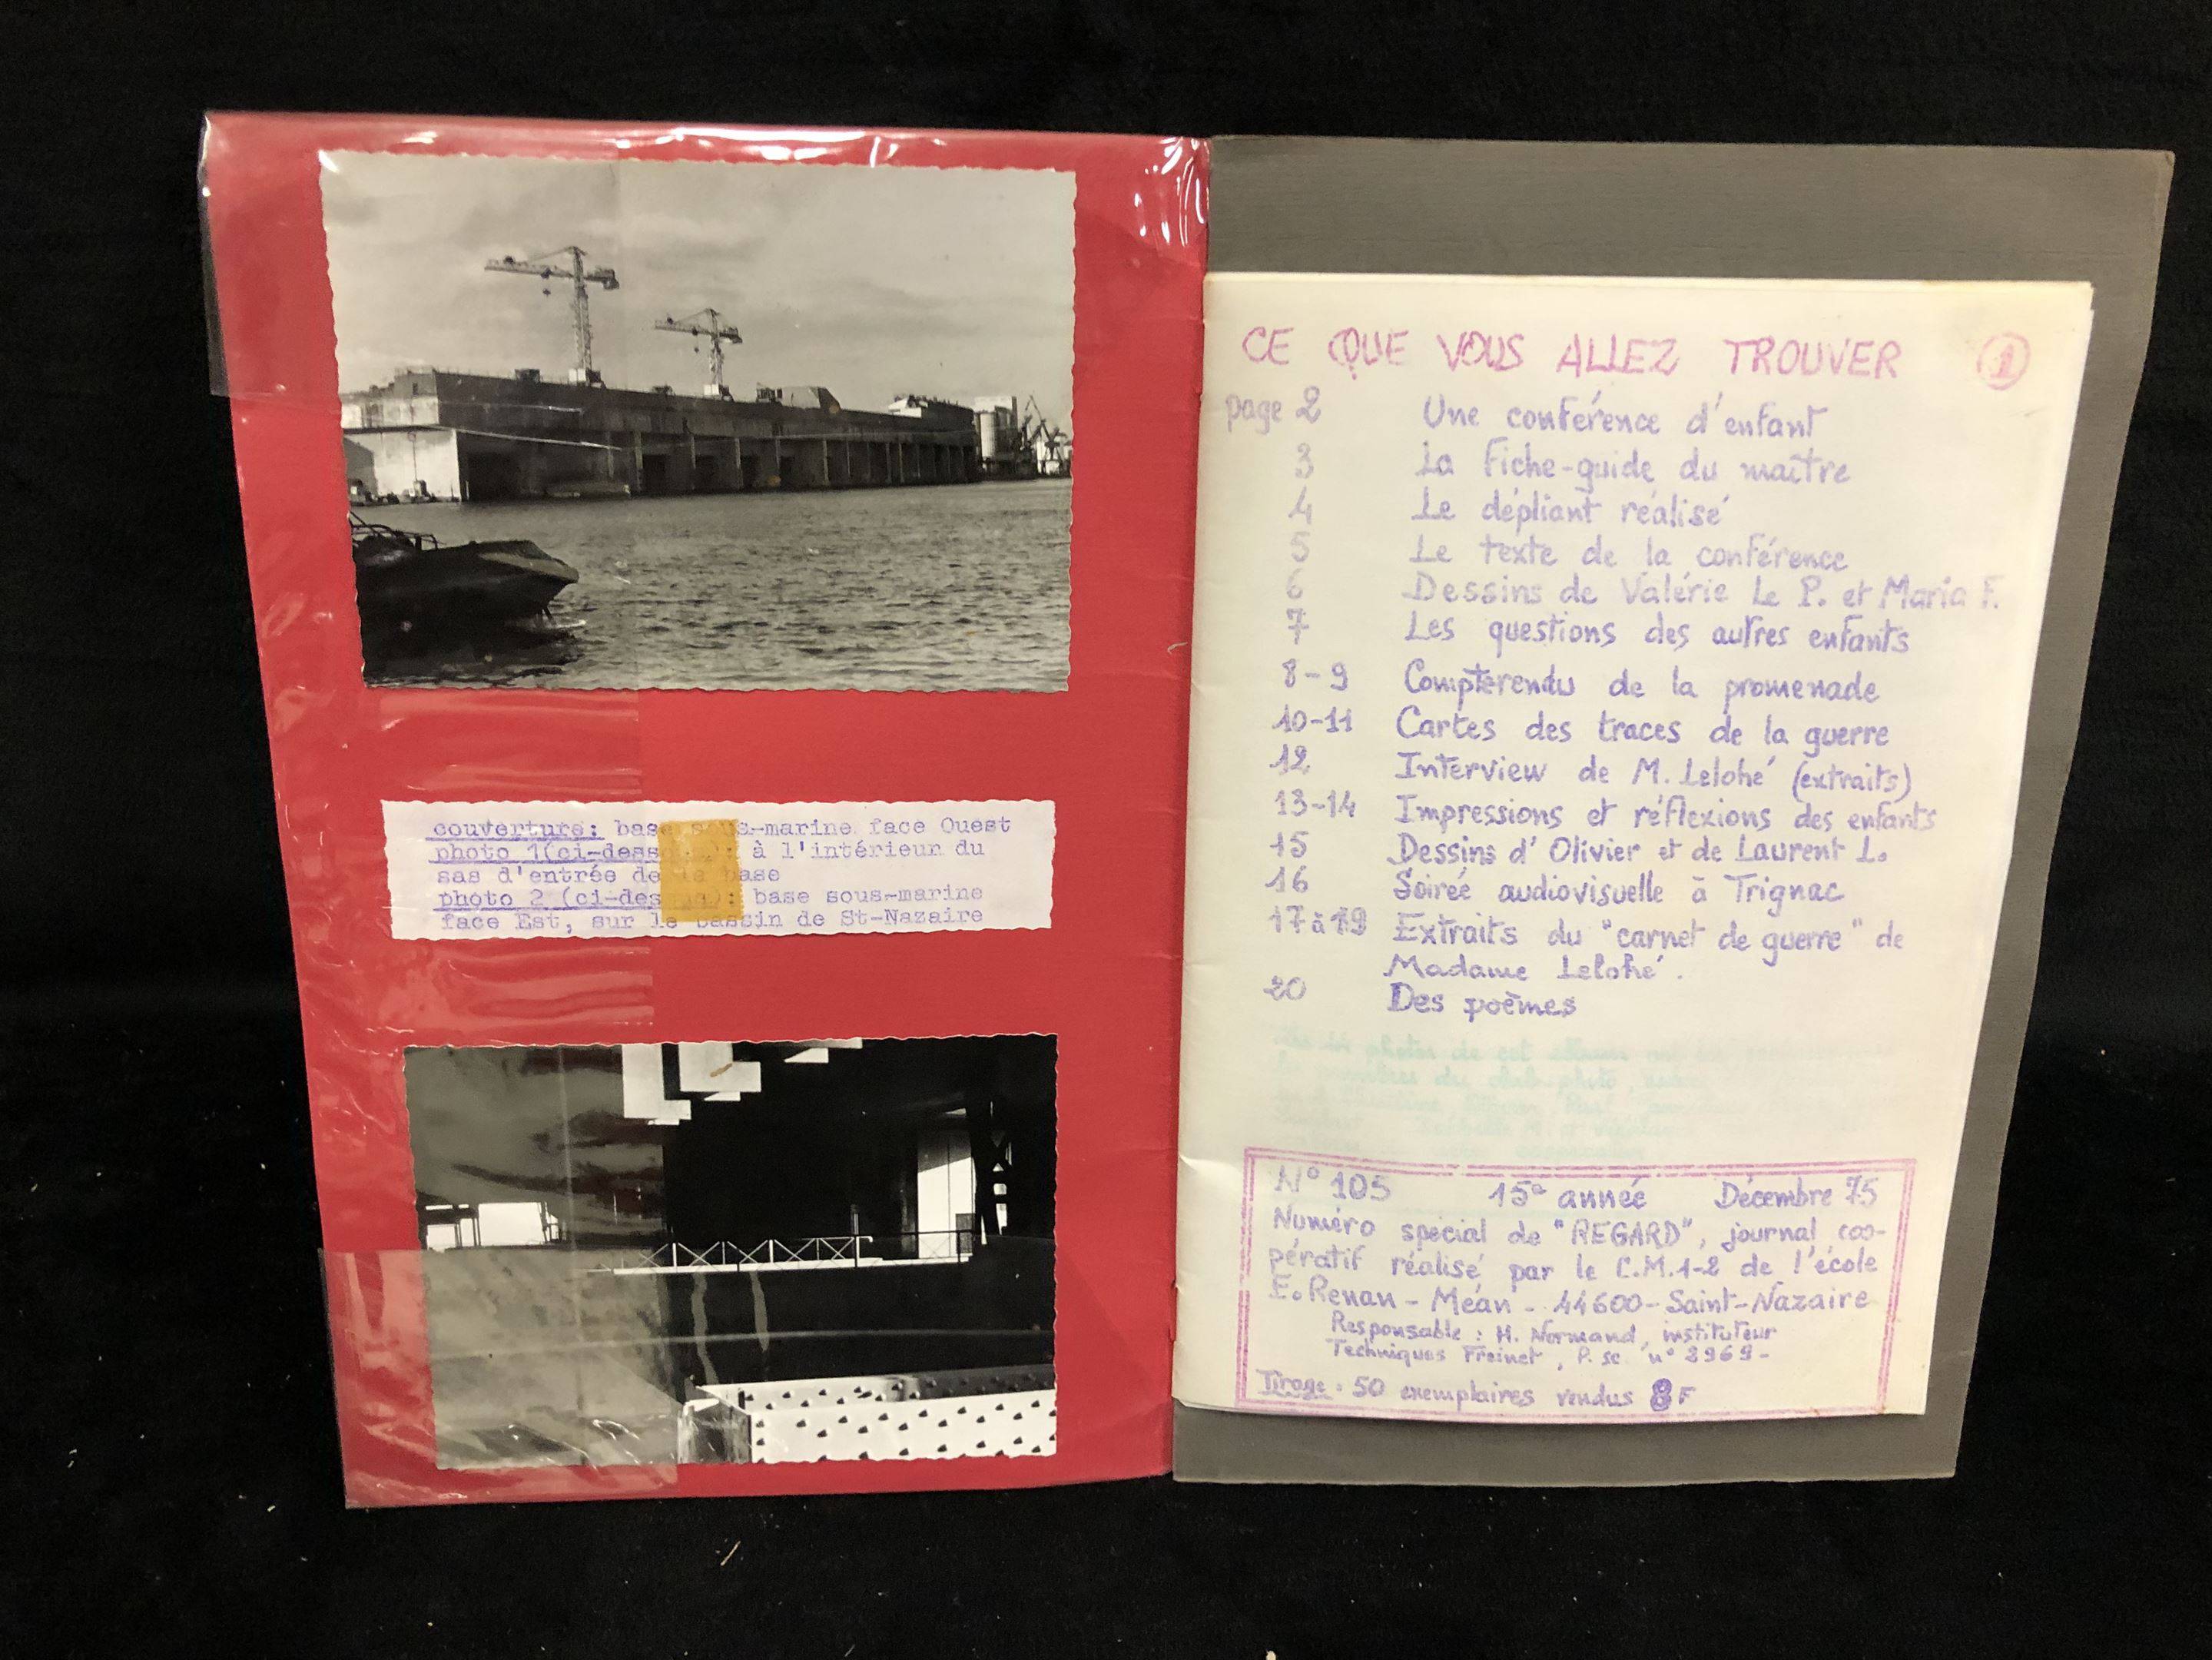 couverture: base sous-marine face Ouest
photo 1(ci-dess : à l'intérieur du
sas d'entrée de la base
photo 2 (ci-des : base sous-marine
face Est, sur le bassin de St-Nazaire
CE QUE VOUS ALLEZ TROUVER 1
page 2 Une conférence d'enfant
3 La fiche-guide du maître
4 Le dépliant réalisé
5 Le texte de la conférence
6 Dessins de Valérie Le P. et Maria F.
7 Les questions des autres enfants
8-9 Compterendu de la promenade
10-11 Cartes des traces de la guerre
12 Interview de M. Lelohé (extraits)
13-14 Impressions et réflexions des enfants
15 Dessins d'Olivier et de Laurent L.
16 Soirée audiovisuelle à Trignac
17 à 19 Extraits du "carnet de guerre" de
Madame Lelohé.
20 Des poèmes
14 photos de cet album
membres du club-photo
N° 105 15e année Décembre 75
Numéro spécial de "REGARD", journal coo-
pératif réalisé par le C.M.1-2 de l'école
E. Renan - Méan - 44600 - Saint-Nazaire
Responsable : M. Normand, instituteur
Techniques Freinet, P. sc. n° 2969-
Tirage : 50 exemplaires vendus 8 F